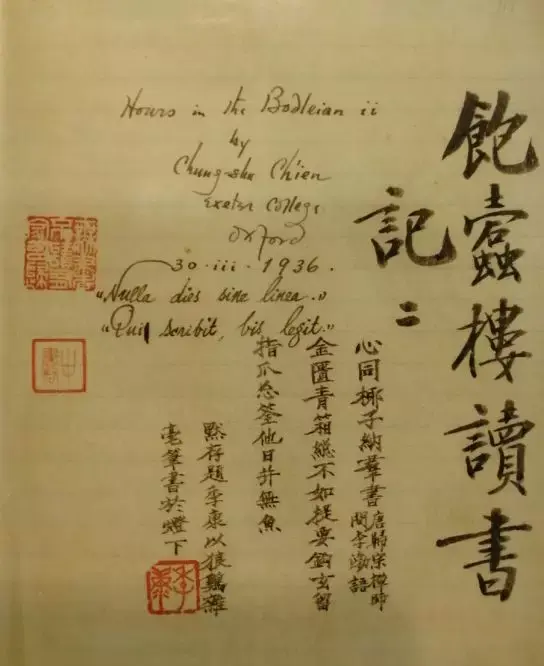 Hours in the Bodleian ii
by
Chung-shu Ch'ien
Exeter College
Oxford
30·iii·1936.
"Nulla dies sine linea."
"Qui scribit, bis legit."
飽蠹樓讀書
記二
心同椰子納羣書唐歸宗禪師李渤語
金匱青箱總不如提要鈎玄留
指爪忘筌他日并無魚
默存題季康以狼鷄
毫筆書於燈下
季康